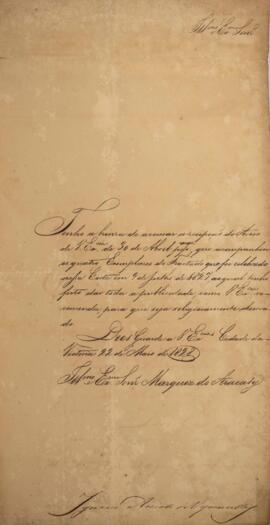 Illmo e Exmo Senr
Tenho a honra de accusar a recepção do Aviso
de V. Exa de 30 de Abril ppo, que acompanhou
os quatro Exemplares do Tratado que foi celebrado
nesta Corte em 9 de Julho de 1827, ao qual tenho
feito dar toda a publicidade, como V. Exa re-
comenda, para que seja religiosamente observa-
do
Deos Guarde a V. Exa Cidade da
Victoria 22 de Maio de 1828
Illmo e Exmo Senr Marquez de Aracaty
Ignacio Accioli de Vasconcellos